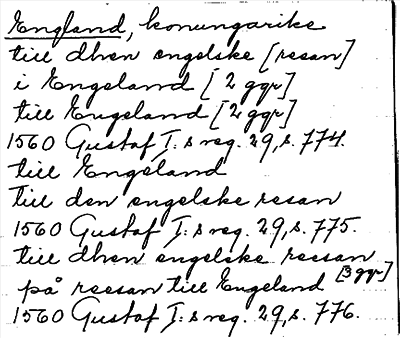 England, konungarike
till dhen engelske [resan]
i Engeland [2 ggr]
till Engeland [2 ggr]
1560 Gustaf I:s reg. 29, s. 774.
till Engeland
till den engelske resan
1560 Gustaf I:s reg. 29, s. 775.
till dhen engelske reesan
på reesan till Engeland [3 ggr]
1560 Gustaf I:s reg. 29, s. 776.